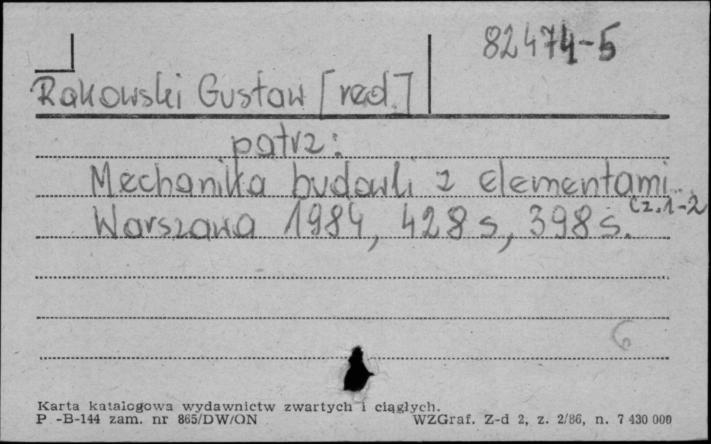 82474-5
Rakowski Gustaw [red.]
patrz:
Mechanika budowli z elementami..
cz. 1-2
Warszawa 1984, 428 s, 398 s.
6
Karta katalogowa wydawnictw zwartych i ciągłych.
P -B-144 zam. nr 865/DW/ON WZGraf. Z-d 2, z. 2/86, n. 7 430 000